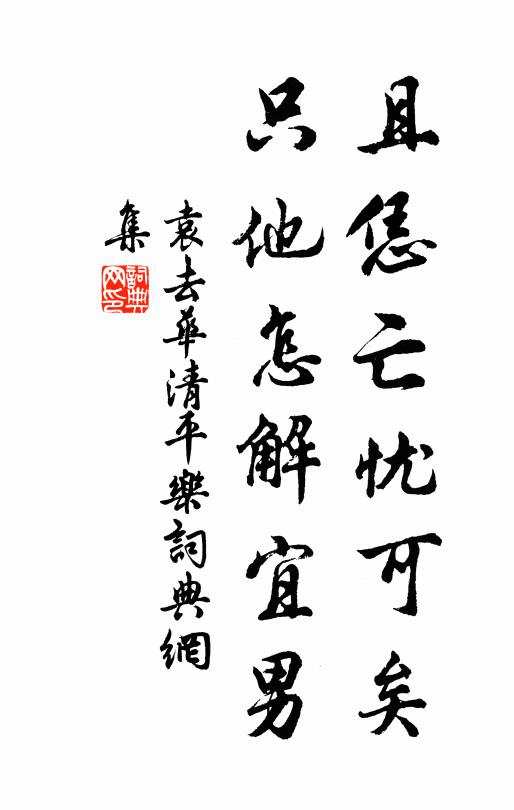 且恁亡忧可矣
只他怎解宜男
袁去華清平樂詞典網
集
詞典網印